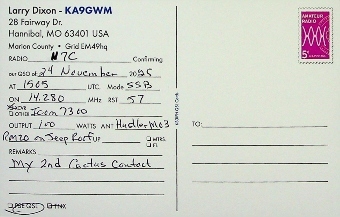 Larry Dixon - KA9GWM
28 Fairway Dr.
Hannibal, MO 63401 USA
Marion County • Grid EM49hq
RADIO H7C Confirming
our QSO of 24 November 2025
AT 1505 UTC Mode SSB
ON 14.280 MHz RST 57
XCVR
OTHER Icom 7300
OUTPUT 100 WATTS ANT Hustler Mo3
RM20 on Jeep Roof UP MTRS
FT
REMARKS
My 2nd Cactus Contact
PSE QSL TNX
TO:
AMATEUR
RADIO
5¢